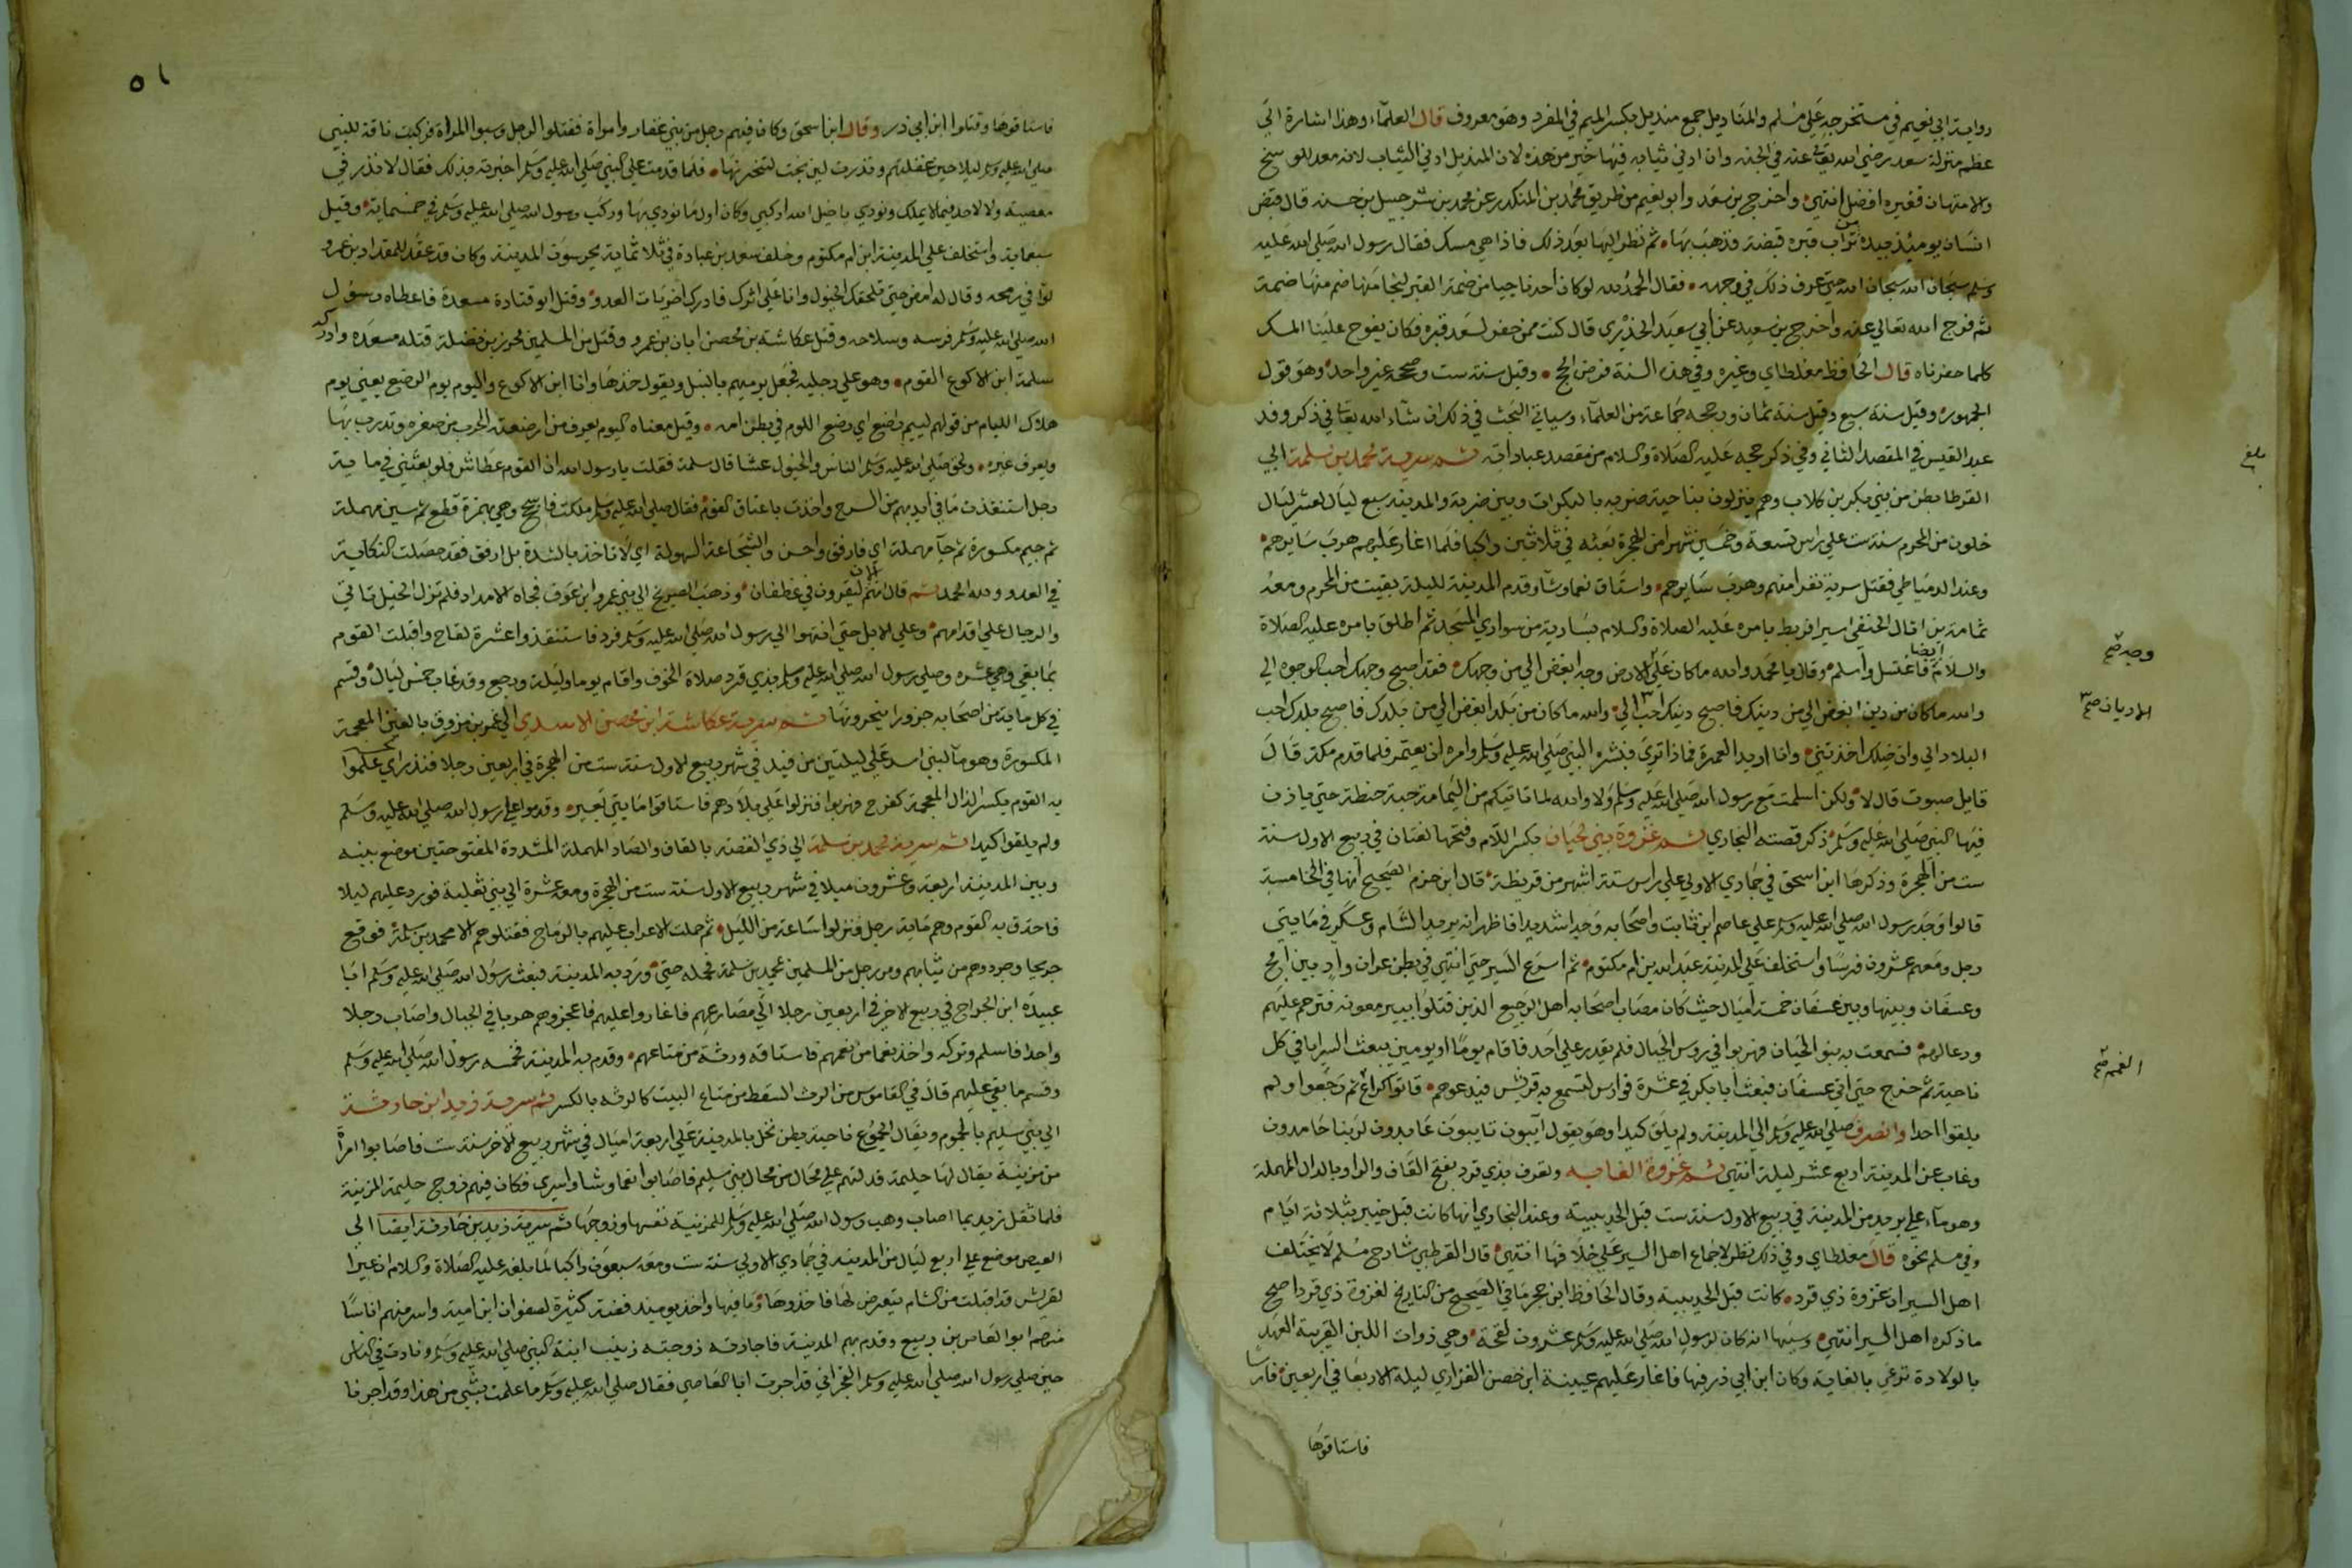 رواية ابي نعيم في مستخرجه على مسلم والمناديل جمع منديل بكسر الميم في المفرد وهو معروف قال العلماء وهذا اشارة الى
عظم منزلة سعد رضي الله تعالى عنه في الجنة وان ادنى ثيابه فيها خير من هذه لان المنديل ادنى الثياب لانه معد للوسخ
والامتهان فغيره افضل انتهى واخرج بن سعد وابو نعيم من طريق محمد بن المنكدر عن محمد بن شرحبيل بن حسنه قال قبض
انسان يومئذ بيده من تراب قبره قبضة فذهب بها ثم نظر اليها بعد ذلك فاذا هي مسك فقال رسول الله صلى الله عليه
وسلم سبحان الله سبحان الله حتى عرف ذلك في وجهه فقال الحمد لله لو كان احد ناجيا من ضمة القبر لنجا منها ضم منها ضمة
ثم فرج الله تعالى عنه واخرج بن سعد عن ابي سعيد الخدري قال كنت ممن حفر لسعد قبره فكان يفوح علينا المسك
كلما حفرناه قال الحافظ مغلطاي وغيره وفي هذه السنة فرض الحج وقيل سنة ست وصححه غير واحد وهو قول
الجمهور وقيل سنة سبع وقيل سنة ثمان ورجحه جماعة من العلماء وسياتي البحث في ذلك ان شاء الله تعالى في ذكر وفد
عبد القيس في المقصد الثاني وفي ذكر حجه عليه الصلاة والسلام من مقصد عباداته ثم سرية محمد بن مسلمة الى
القرطا بطن من بني بكر بن كلاب وهم ينزلون بناحية ضرية بالبكرات وبين ضرية والمدينة سبع ليال لعشر ليال
خلون من المحرم سنة ست على راس تسعة وخمسين شهرا من الهجرة بعثه في ثلاثين راكبا فلما اغار عليهم هرب سايرهم
وعند الدمياطي فقتل سرية نفرا منهم وهرب سايرهم واستاق نعما وشآ وقدم المدينة لليلة بقيت من المحرم ومعه
ثمامة بن اثال الحنفي اسيرا فربط بامره عليه الصلاة والسلام بسارية من سواري المسجد ثم اطلق بامره عليه الصلاة
والسلام ايضا فاغتسل واسلم وقال يا محمد والله ما كان على الارض وجه ابغض الي من وجهك فقد اصبح وجهك احب الوجوه الي
والله ما كان من دين ابغض الي من دينك فاصبح دينك احب الي والله ما كان من بلد ابغض الي من بلدك فاصبح بلدك احب
البلاد الي وان خيلك اخذتني وانا اريد العمرة فماذا ترى فبشره النبي صلى الله عليه وسلم وامره ان يعتمر فلما قدم مكة قال
قايل صبوت قال لا ولكن اسلمت مع رسول الله صلى الله عليه وسلم ولا والله لا تاتيكم من اليمامة حبة حنطة حتى ياذن
فيها النبي صلى الله عليه وسلم ذكر قصته البخاري ثم غزوة بني لحيان بكسر اللام وفتحها لغتان في ربيع الاول سنة
ست من الهجرة وذكرها ابن اسحق في جمادي الاولى على راس ستة اشهر من قريظة قال ابن حزم الصحيح انها في الخامسة
قالوا وجد رسول الله صلى الله عليه وسلم على عاصم ابن ثابت واصحابه وجدا شديدا فاظهر انه يريد الشام وعسكر في مايتي
رجل ومعهم عشرون فرسا واستخلف على المدينة عبد الله بن ام مكتوم ثم اسرع السير حتى انتهى في بطن غران واد بين امج
وعسفان وبينها وبين عسفان خمسة اميال حيث كان مصاب اصحابه اهل الرجيع الذين قتلوا ببير معونه فترحم عليهم
ودعا لهم فسمعت به بنو الحيان فهربوا في روس الجبال فلم يقدر على احد فاقام يوما او يومين يبعث السرايا في كل
ناحية ثم خرج حتى اتى عسفان فبعث ابا بكر في عشرة فوارس لتسمع به قريش فيذعرهم فاتوا كراع ثم رجعوا ولم
يلقوا احدا وانصرف صلى الله عليه وسلم الى المدينة ولم يلق كيدا وهو يقول آيبون تايبون عابدون لربنا حامدون
وغاب عن المدينة اربع عشر ليلة انتهى ثم غزوة الغابه وتعرف بذي قرد بفتح القاف والراو بالدال المهملة
وهو ماء على بريد من المدينة في ربيع الاول سنة ست قبل الحديبية وعند البخاري انها كانت قبل خيبر بثلاثة ايام
وفي مسلم نحوه قال مغلطاي وفي ذلك نظر لاجماع اهل السير على خلافها انتهى قال القرطبي شارح مسلم لا يختلف
اهل السير ان غزوة ذي قرد كانت قبل الحديبية وقال الحافظ ابن حجر ما في الصحيح من التاريخ لغزوة ذي قرد اصح
ما ذكره اهل السير انتهى وسببها انه كان لرسول الله صلى الله عليه وسلم عشرون لقحة وهي ذوات اللبن القريبة العهد
بالولادة ترعى بالغابة وكان ابن ابي ذر فيها فاغار عليهم عيينة ابن حصن الفزاري ليلة الاربعا في اربعين فارسا
فاستاقوها
بلغ
وجه صح
الاديان صح
الغميم صح
٥١
فاستاقوها وقتلوا ابن ابي ذر وقال ابن اسحق وكان فيهم رجل من بني غفار وامراة فقتلوا الرجل وسبوا المراة فركبت ناقة للنبي
صلى الله عليه وسلم ليلا حين غفلتهم ونذرت لين نجت لتنحرنها فلما قدمت على النبي صلى الله عليه وسلم اخبرته بذلك فقال لا نذر في
معصية ولا لاحد فيما لا يملك ونودي يا خيل الله اركبي وكان اول ما نودي بها وركب رسول الله صلى الله عليه وسلم في خمسماية وقيل
سبعماية واستخلف على المدينة ابن ام مكتوم وخلف سعد بن عبادة في ثلاثماية يحرسون المدينة وكان قد عقد للمقداد بن عمرو
لوآ في رمحه وقال له امض حتى تلحقك الخيول وانا على اثرك فادرك اخريات العدو وقتل ابو قتادة مسعدة فاعطاه رسول
الله صلى الله عليه وسلم فرسه وسلاحه وقتل عكاشة بن محصن ابان بن عمرو وقتل من المسلمين محرز بن نضلة قتله مسعده وادرك
سلمة ابن الاكوع القوم وهو على رجليه فجعل يرميهم بالنبل ويقول خذها وانا ابن الاكوع واليوم يوم الرضع يعني يوم
هلاك الليام من قولهم لييم راضع اي رضع اللوم في بطن امه وقيل معناه اليوم يعرف من ارضعته الحرب من صغره وتدرب بها
ويعرف غيره ولحق صلى الله عليه وسلم الناس والخيول عشا قال سلمة فقلت يا رسول الله ان القوم عطاش فلو بعثتني في ماية
رجل استنقذت ما في ايديهم من السرح واخذت باعناق القوم فقال صلى الله عليه وسلم ملكت فاسجح وهي بهمزة قطع ثم سين مهملة
ثم جيم مكسورة ثم حآ مهملة اي فارفق واحسن والشجاعة السهولة اي لا تاخذ بالشدة بل ارفق فقد حصلت النكاية
في العدو ولله الحمد ثم قال انهم الان ليقرون في غطفان وذهب الصريخ الى بني عمرو ابن عوف فجاه الامداد فلم تزل الخيل تاتي
والرجال على اقدامهم وعلى الابل حتى انتهوا الى رسول الله صلى الله عليه وسلم بقرد فاستنقذوا عشرة لقاح وافلتت القوم
بما بقي وهي عشره وصلى رسول الله صلى الله عليه وسلم بذي قرد صلاة الخوف واقام يوما وليلة ورجع وقد غاب خمس ليال وقسم
في كل ماية من اصحابه جزورا ينحرونها ثم سرية عكاشة ابن محصن الاسدي الى غمر بن مرزوق بالغين المعجمة
المكسورة وهو مآ لبني اسد على ليلتين من فيد في شهر ربيع الاول سنة ست من الهجرة في اربعين رجلا فنذر اي علموا
به القوم بكسر الذال المعجمة كفرح فهربوا فنزلوا على بلادهم فاستاقوا مايتي بعير وقدموا على رسول الله صلى الله عليه وسلم
ولم يلقوا كيدا ثم سرية محمد بن مسلمة الى ذي القصة بالقاف والصاد المهملة المشددة المفتوحتين موضع بينه
وبين المدينة اربعة وعشرون ميلا في شهر ربيع الاول سنة ست من الهجرة ومعه عشرة الى بني ثعلبة فورد عليهم ليلا
فاحدق به القوم وهم ماية رجل فنزلوا ساعة من الليل ثم حملت الاعراب عليهم بالرماح فقتلوهم الا محمد بن مسلمة فوقع
جريحا وجردوهم من ثيابهم ومر رجل من المسلمين بمحمد بن مسلمة فحمله حتى ورد به المدينة فبعث رسول الله صلى الله عليه وسلم ابا
عبيده ابن الجراح في ربيع الاخر في اربعين رجلا الى مصارعهم فاغاروا عليهم فاعجزوهم هربا في الجبال واصاب رجلا
واحدا فاسلم وتركه واخذ نعما من نعمهم فاستاقه ورثة من متاعهم وقدم به المدينة فخمسه رسول الله صلى الله عليه وسلم
وقسم ما بقي عليهم قال في القاموس من الرث السقط من متاع البيت كالرثه بالكسر ثم سرية زيد ابن حارثة
الى بني سليم بالجموم ويقال الجموح ناحية ببطن نخل بالمدينة على اربعة اميال في شهر ربيع الاخر سنة ست فاصابوا امرأة
من مزينة يقال لها حليمة فدلتهم على محال من محال بني سليم فاصابوا نعما وشا واسرى فكان فيهم زوج حليمة المزنية
فلما قفل زيد بما اصاب وهب رسول الله صلى الله عليه وسلم للمزنية نفسها وزوجها ثم سرية زيد بن حارثة ايضا الى
العيص موضع على اربع ليال من المدينة في جمادي الاولى سنة ست ومعه سبعون راكبا لما بلغه عليه الصلاة والسلام ان عيرا
لقريش قد اقبلت من الشام يتعرض لها فاخذوها وما فيها واخذ يوميذ فضة كثيرة لصفوان ابن امية واسر منهم اناسا
منهم ابو العاص بن ربيع وقدم بهم المدينة فاجارته زوجته زينب ابنة النبي صلى الله عليه وسلم ونادت في الناس
حين صلى رسول الله صلى الله عليه وسلم الفجر اني قد اجرت ابا العاصي فقال صلى الله عليه وسلم ما علمت بشي من هذا وقد اجرنا